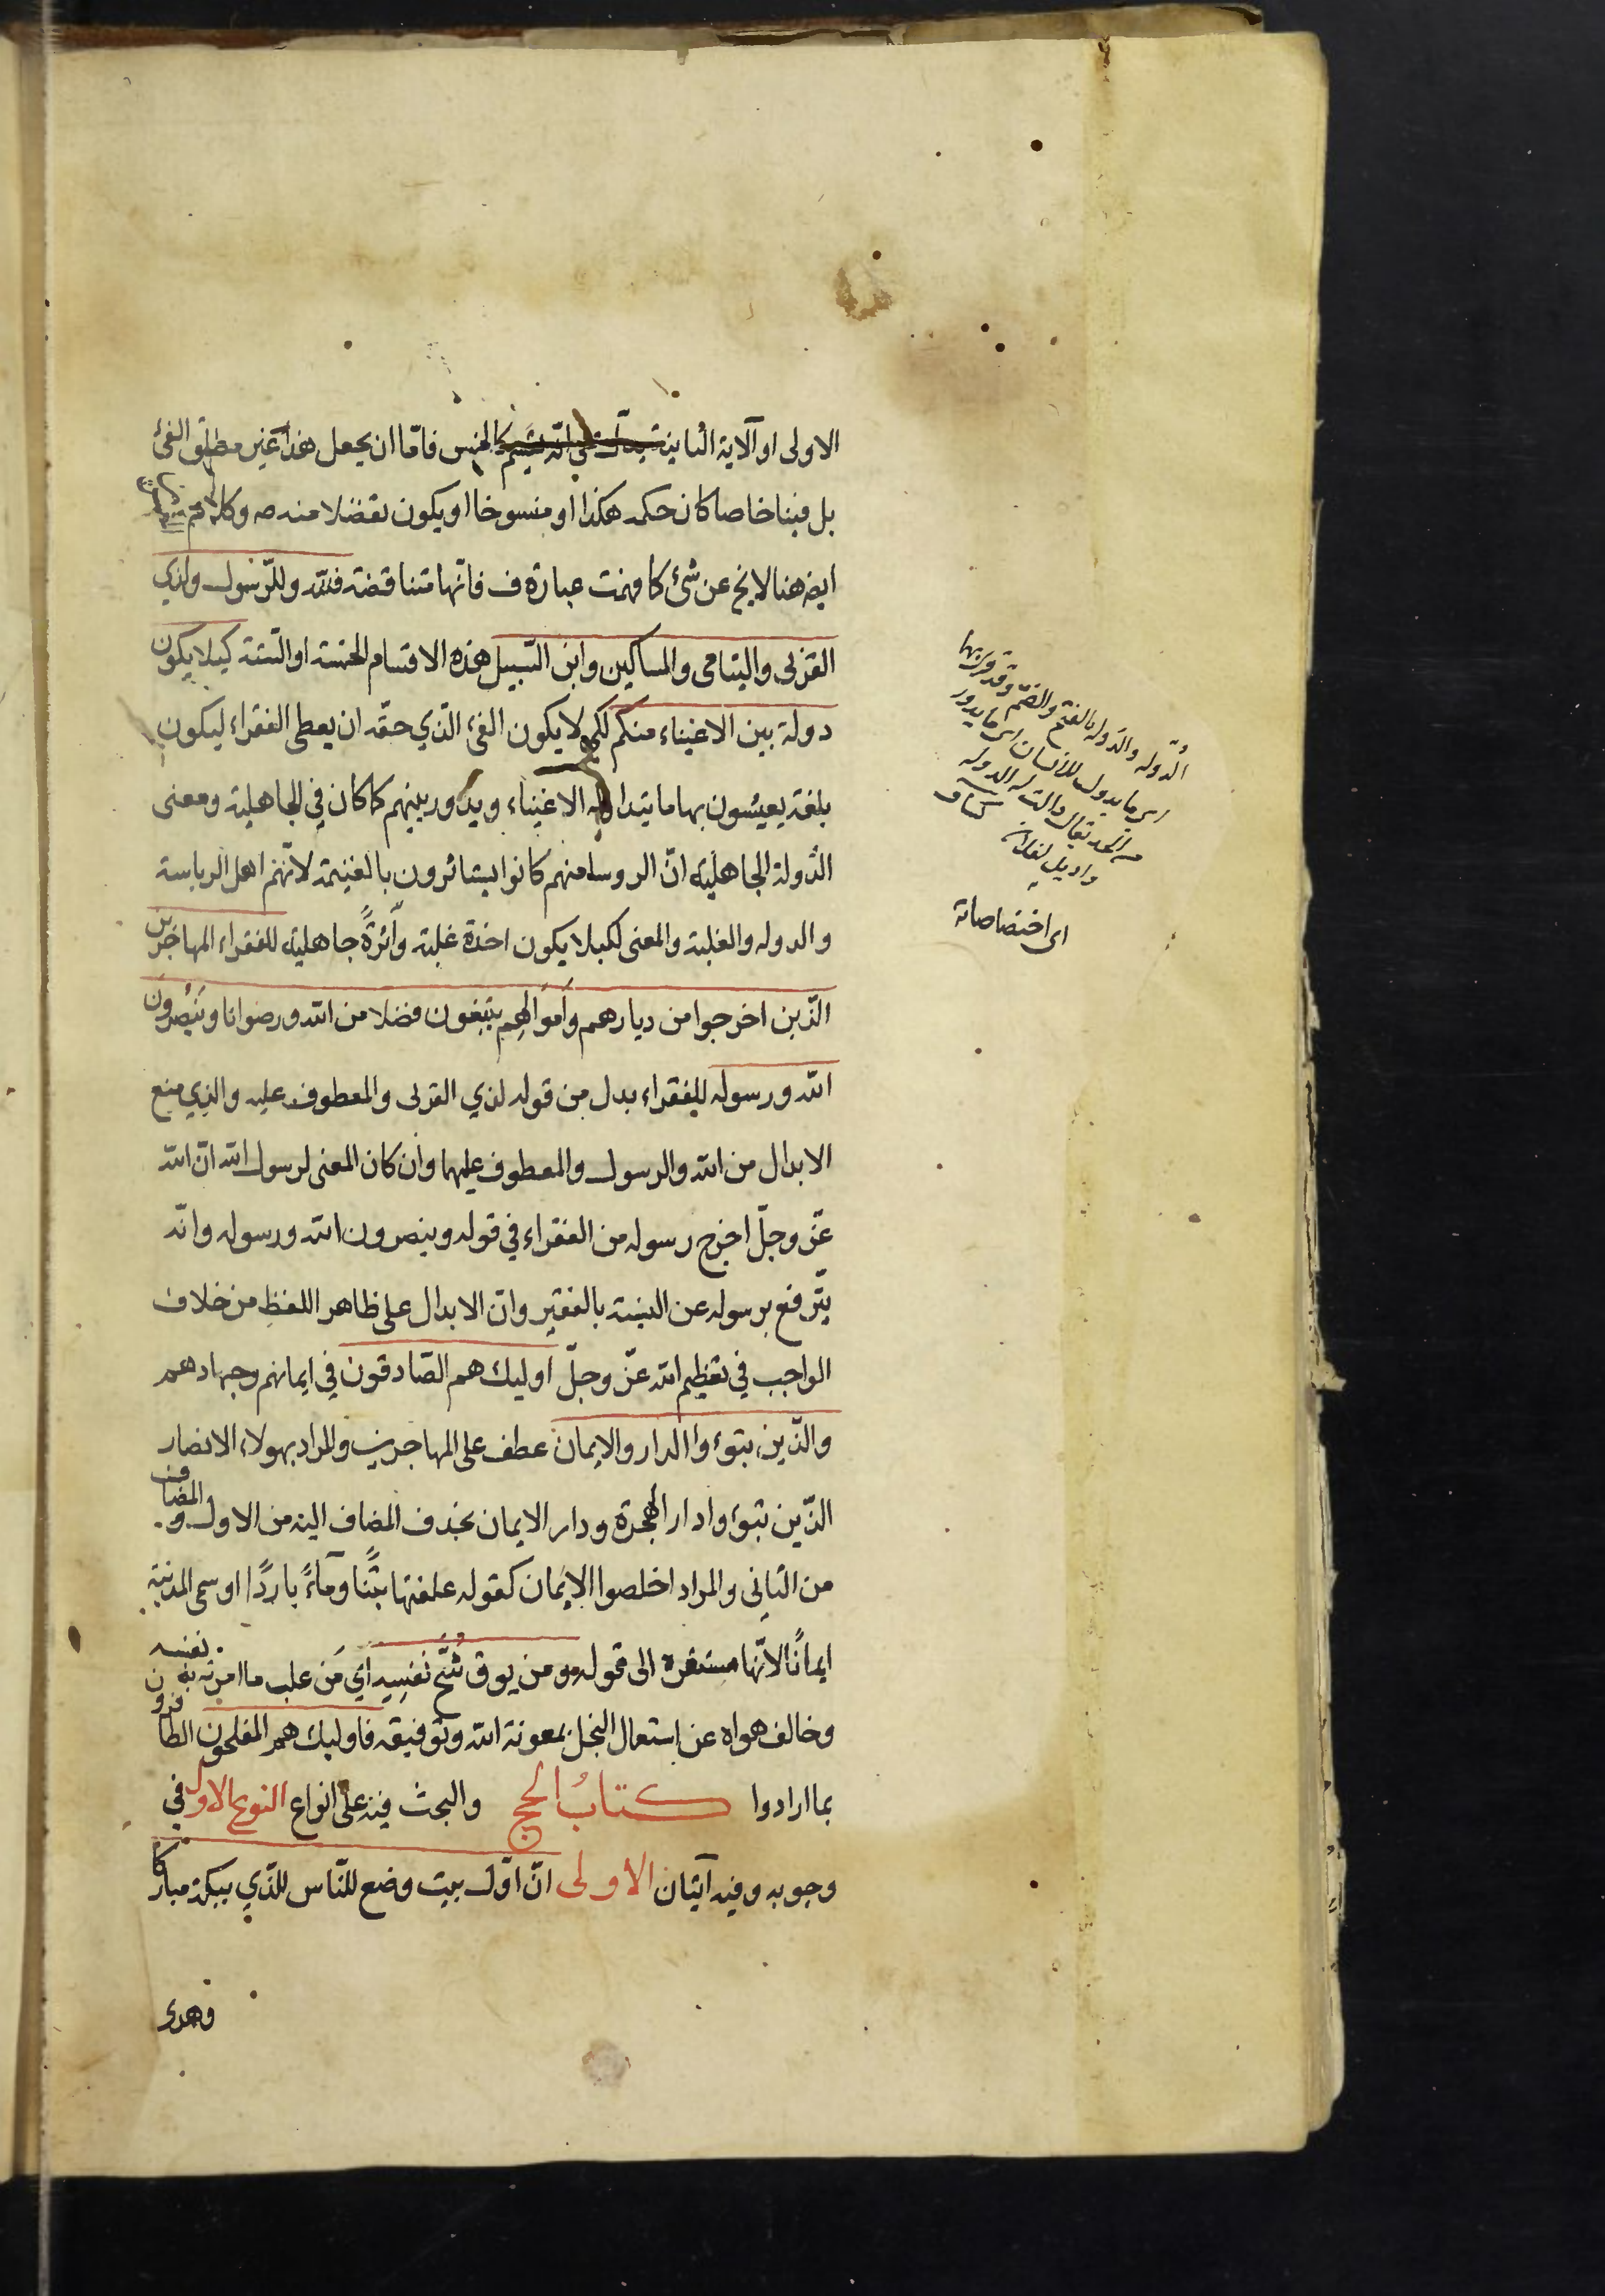 الاولى او آلاية الثانية كالخمس فامّا ان يجعل هذا غير مطلق الفئ
بل فيئا خاصا كان حكمه هكذا او منسوخا او يكون تفضلا منه ص وكلام
ايض هنا لايخ عن شئ كما فهمت عبارة ف فانّها متناقضة فلله وللرّسول ولذي
القربى واليتامى والمساكين وابن السّبيل هذه الاقسام الخمسة او السّتة كيلا يكون
دولة بين الاغنياء منكم لكى لا يكون الفئ الّذي حقّه ان يعطى الفقراء ليكون
بلغة يعيشون بها ما يتداوله الاغنياء ويدور بينهم كما كان في الجاهلية ومعنى
الدّولة الجاهلية انّ الروسا منهم كانوا يستاثرون بالغنيمة لانّهم اهل الرياسة
والدوله والغلبة والمعنى لكيلا يكون اخذة غلبة وأثرةً جاهلية للفقراء المهاجرين
الّذين اخرجوا من ديارهم وأموالهِم يبتغون فضلا من الله ورضوانا وينصرون
الله ورسوله للفقراء بدل من قوله لذي القربى والمعطوف عليه والذي منع
الابدال من الله والرسول والمعطوف عليهما وان كان المعنى لرسول الله انّ الله
عزّ وجلّ اخرج رسوله من الفقراء في قوله وينصرون الله ورسوله وانّه
يترّفع برسوله عن التسمية بالفقير وانّ الابدال على ظاهر اللفظِ من خلاف
الواجب في تعظيم الله عزّ وجلّ اوليك هم الصّادقون في ايمانهم وجهادهم
والذّين تبوءوا الدار والايمان عطف على المهاجرين والمراد بهولاء الانصار
الذّين تبوءوا دار الهجرة ودار الايمان بحذف المضاف اليه من الاول والمضاف
من الثانى والمراد اخلصوا الايمان كقوله علفتها تبنًا ومآءً باردًا او سمى المدينة
ايمانًا لانّها مستقره الى قوله ومن يوق شُحَّ نفسِه اي مَن غلب ما امرته به نفسه
وخالف هواه عن استعمال البخل بمعونة الله وتوفيقه فاوليك هم المفلحون الظافرون
بما ارادوا كتابُ الحج والبحث فيه على انواع النوع الاول في
وجوبه وفيه آيتان الاولى انّ اوّل بيت وضع للنّاس للّذي ببكة مباركا
وهدى
الدُّولة والدَّولة بالفتح والضّم وقد قرئ بهما
اى ما يدول للانسان اى ما يدور
من الجد يقال دالت له الدولة
واديل لفلان كشاف
اى اختصاصاته